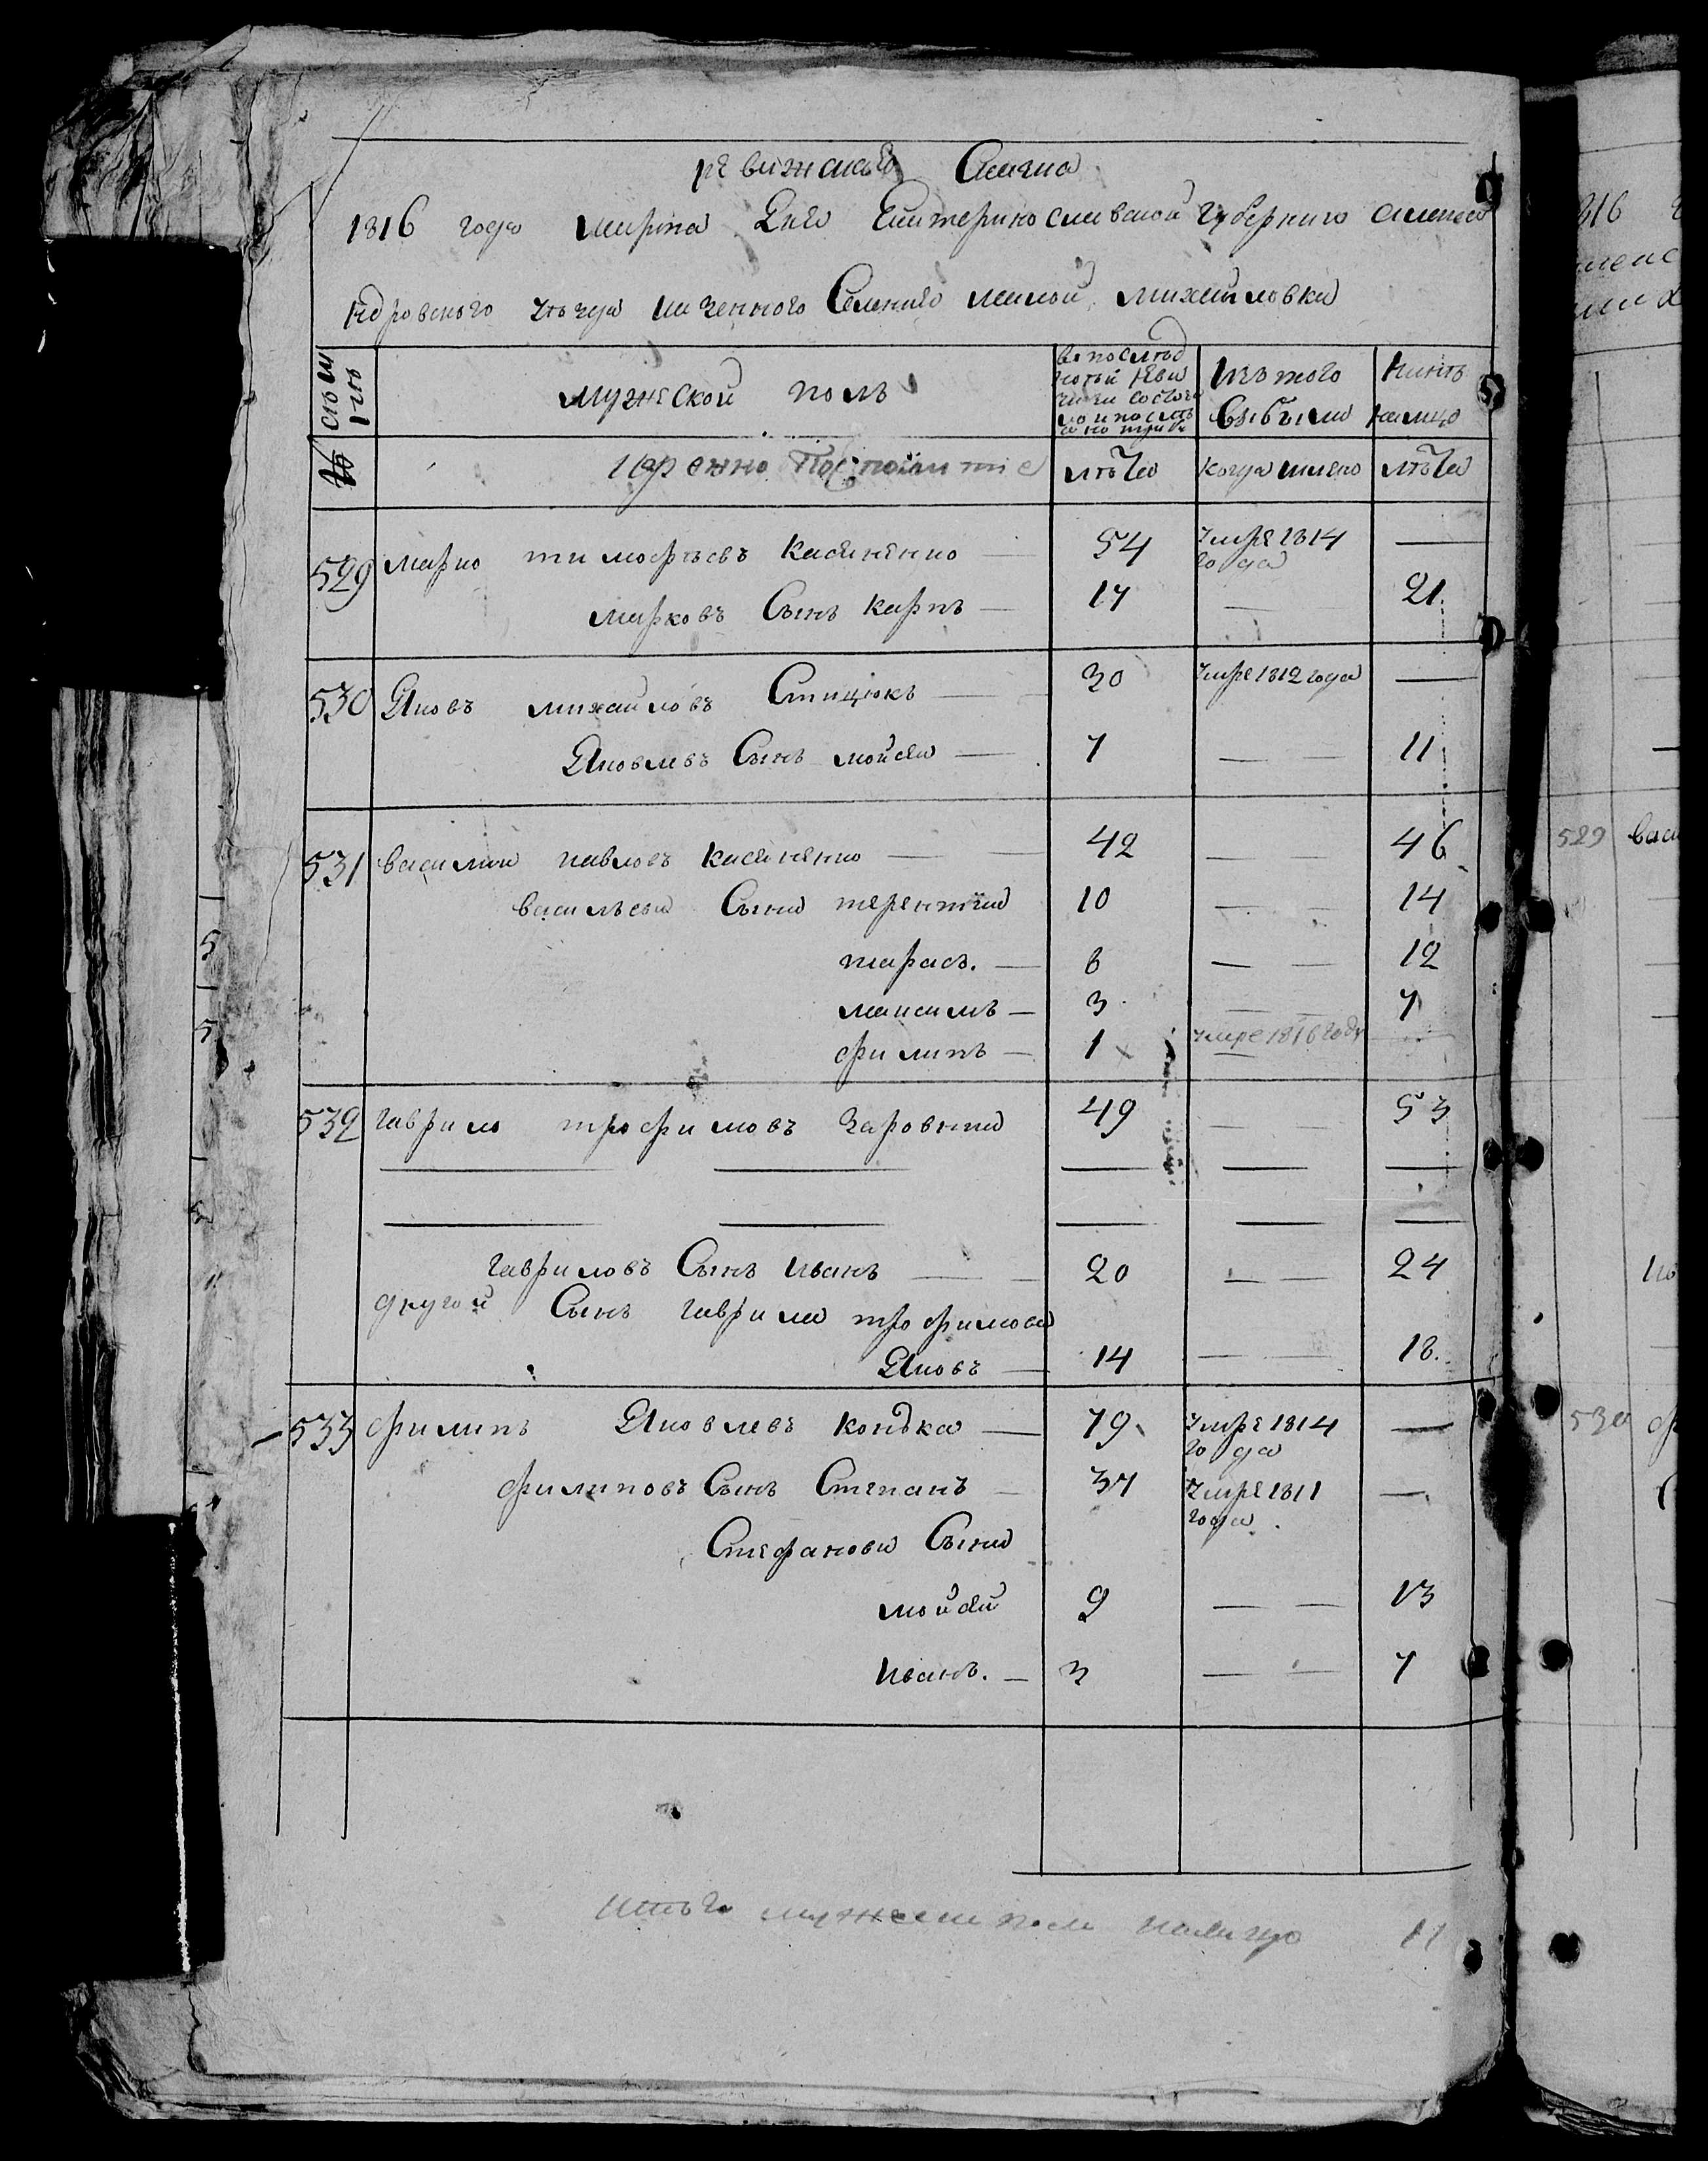 ревижская Сказка
1816 года марта Дня Екатеринославской губернии алекса
ндровского уѣзда казенного Селения малой михайловки
семи
рѣ
мужеской полъ
въ послѣд
ней реви
зіи состоя
ло и послѣ
Изъ того
выбыло
нинѣ
налицо
№
лѣта
когда имено
лѣта
529 марко тимофѣевъ касяненко — 54 умре 1814 —
года
марковъ Сынъ карпъ — 17 — 21
530 Яковъ михайловъ Стицюкъ — 30 умре 1812 года —
Яковлевъ Сынъ мойсей — 7 — — 11
531 василий павловъ касяненко — — 42 — 46
васильеви Сыни терентий 10 — — 14
тарасъ. — 8 — — 12
максимъ — 3 — — 7
филипъ — 1 х умре 1816 году
532 гаврило трофимовъ Заровний 49 — — 53
— — — — —
— — — — —
гавриловъ Сынъ иванъ — — 20 — — 24
другой Сынъ гаврила трофимова
Яковъ — 14 — — 18.
— 533 филипъ Яковлевъ кондка — 79 умре 1814 —
года
филиповъ Сынъ Степанъ — 37 умре 1811 —
года
Стефанови Сыни
мойсей 9 — — 13
иванъ. — 3 — — 7
итого мужеска пола налицо 11
316
529 васи
530 ф